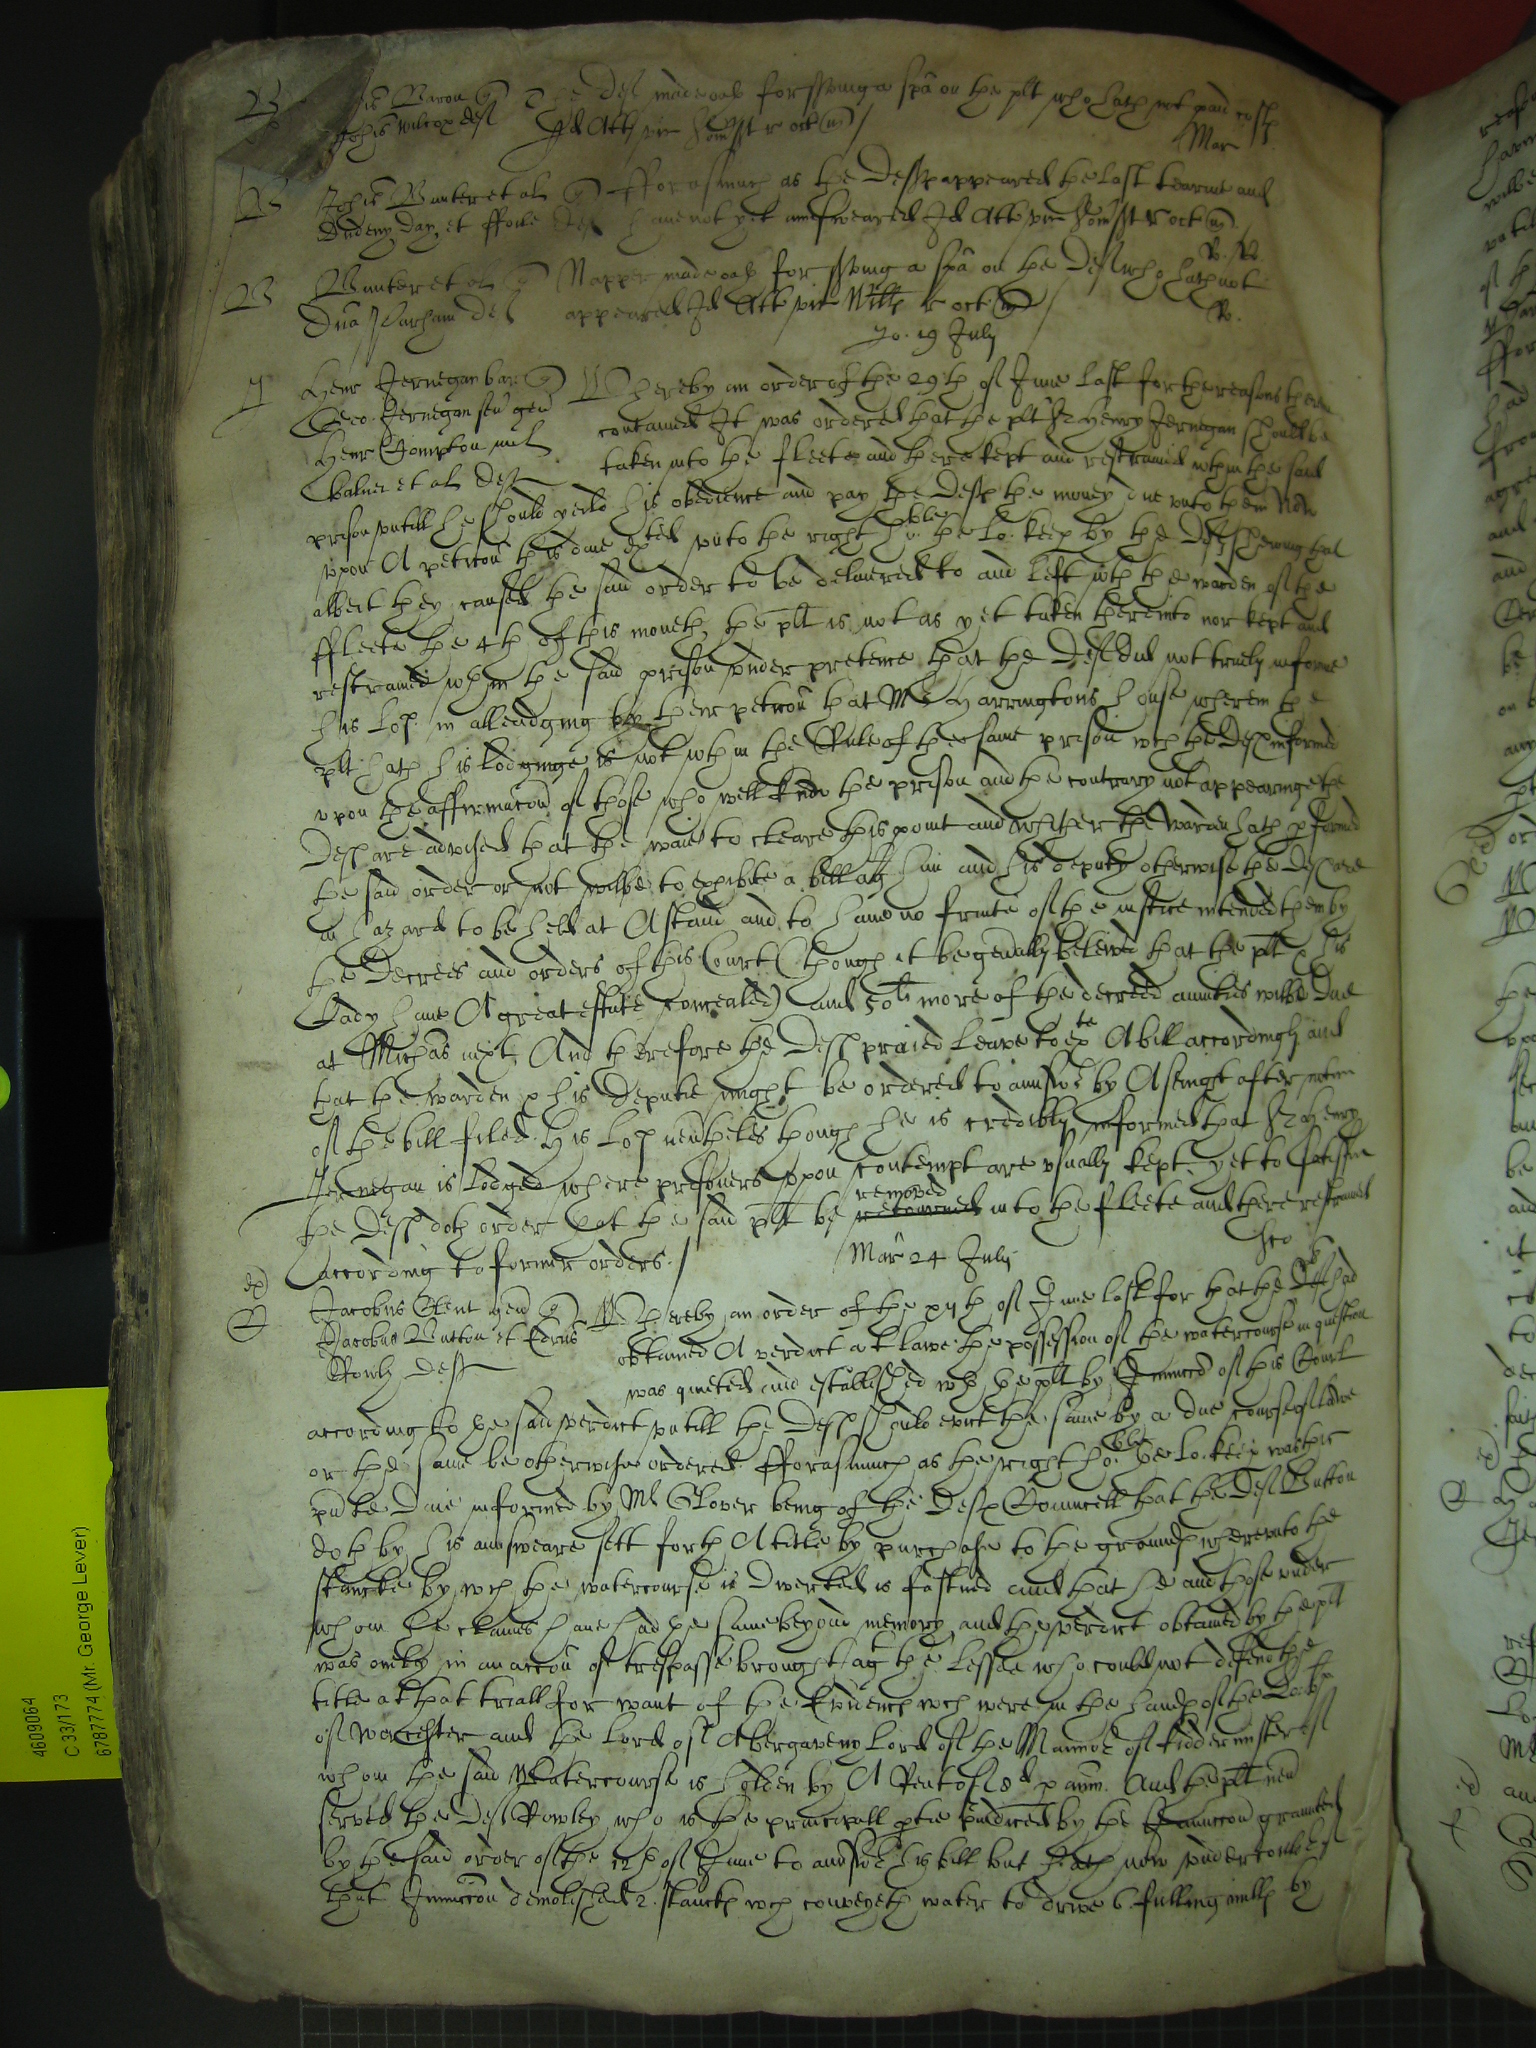 B
Baron q The Deft made oath for serving a spa on the plt who hath not paid costs
Johis Wilcox deft Id Att vic Som st r oct (m)
Mar
B Johes Bunter et al q fforasmuch as the Defts appeared the last tearme and
Day, et deft have not yet answeared Id Att vic Som st r oct (m)
R. R.
B Bunter et al q Napper made oath for serving a spa on the Deft who hath not
Dna Parham deft appeared Id Att vic Wilts r oct (m)
R.
Jo. 19 July
J Henr Jernegan bar q Whereby an order of the 29th of June last for the reasons therein
Geo. Jernegan sen gen contained It was ordered that the plt Sr Henry Jernegan should be
Henr Compton mil taken into the fleete and there kept and restrained wthin the said
et al Defts
prison untill he should yeild his obedience and pay the Defts the money due unto them Now
upon A peticon this daie exted unto the right hoble the Lo: keep by the Defts shewing that
albeit they caused the said order to be delivered to and left wth the warden of the
ffleete the 4th of this moneth, the plt is not as yet taken thereinto nor kept and
restrained wthin the said prison under pretence that the Deft did not truely informe
his Lop. in alleadging by their peticon that Mr Harringtons house wherein the
plt hath his lodginge is not wthin the Rule of the same prison wch the Defts informed
upon the affirmacon of those who well knew the prison and the contrary not appearinge the
Defts are advised that the waie to cleare this point and whither the Warden hath pformed
the said order or not wilbe to exhibite a bill agt him and his deputy otherwise the Defts are
in hazard to be held at A stand and to have no fruite of the justice intended them by
the Decrees and orders of this Court (though it be genally beleived that the plt & his
Lady have A great estate concealed) and 50li more of the decreed annuities wilbe due
at Michas next, And therefore the Defts praied leave to exte A bill accordingly and
that the warden & his Deputie might be ordered to answe by A senight after notice
of the bill filed. His Lop. nevtheles though he is credibly informed that Sr Henry
Jernegan is lodged where prisoners upon contempt are usually kept yet to satisfie
removed
the Defts doth order yt the said plt be returned into the fleete and there restrained
according to former orders.
Mar 24 July
ex
R Jacobus Rent gen q Whereby an order of the xijth of June last for that the Deft had
Jacobus Button et Edrus obtained A verdict at lawe the possession of the watercourse in question
Rowly Defts was quieted and established wth the plt by Iniuncon of this Court
according to the said verdict untill the Defts should evict the same by a due course of lawe
or the same be otherwise ordered. fforasmuch as the right hoble the Lo: keep was this
pnte daie informed by Mr Glover being of the Defts Councell that the Deft Button
doth by his answeare sett forth A title by purchase to the grounds whereunto the
stancke by wch the watercourse is diverted is fastned and that he and those under
whom he claimes have had the same beyond memory, and the verdict obtained by the plt
was onely in an accon of trespasse brought agt the Lessee who could not defend the
title at that triall for want of the Evidences wch were in the hands of the
of Worcester and the Lord of Abergaveny Lord of the Mannor of Kidderminster of
whom the said Watercourse is holden by A Rent of 8d p ann. And the plt nevr
served the Deft Rowley who is the principall ptie piudiced by the Iniuncon graunted
by the said order of the 12th of June to answe his bill but hath now under colour of
that Iniuncon demolished 2. stancks wch conveyeth water to drive 6. fulling mills by
4609064
C 33/173
6787774 (Mr. George Lever)